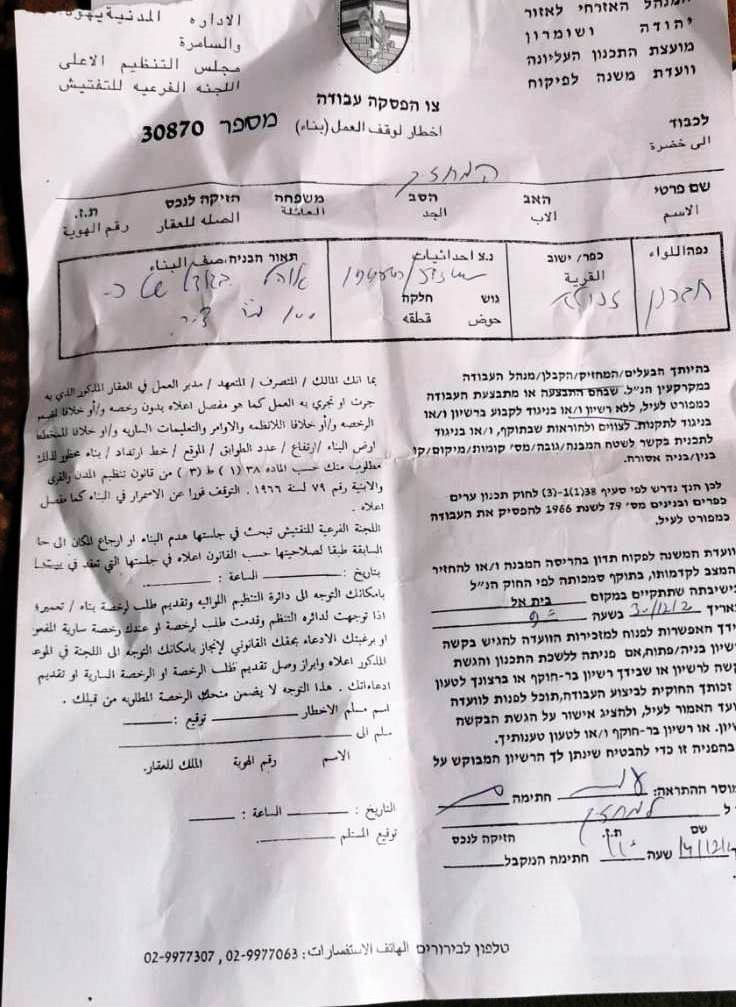 המנהל האזרחי לאזור
יהודה ושומרון
מועצת התכנון העליונה
וועדת משנה לפיקוח
الاداره المدنية يهودا
والسامرة
مجلس التنظيم الاعلى
اللجنه الفرعيه للتفتيش
צו הפסקה עבודה
اخطار لوقف العمل (بناء)
מספר 30870
לכבוד
الى حضرة
המחזיק
שם פרטי האב הסב משפחה הזיקה לנכס ת.ז.
الاسم الاب الجد العائلة الصله للعقار رقم الهوية
נפה اللواء
חברון
כפר/ ישוב
القرية
נ.צ احداثيات
גוש חלקה
حوض قطقه
תאור הבניה، صنف البناء
אוהל בגודל של כ-
בהיותך הבעלים/המחזיק/הקבלן/מנהל העבודה
במקרקעין הנ"ל. שבהם התבצעה או מתבצעת העבודה
כמפורט לעיל, ללא רשיון ו/או בניגוד לקבוע ברשיון ו/או
בניגוד לתקנות. לצווים ולהוראות שבתוקף, ו/או בניגוד
לתכנית בקשר לשטח המבנה/גובה/מס' קומות/מיקום/קו
בנין/בניה אסורה.
לכן הנך נדרש לפי סעיף 38(1)-(3) לחוק תכנון ערים
כפרים ובנינים מס' 79 לשנת 1966 להפסיק את העבודה
כמפורט לעיל.
וועדת המשנה לפקוח תדון בהריסה המבנה ו/או להחזיר
המצב לקדמותו, בתוקף סמכותה לפי החוק הנ"ל
בישיבתה שתקיים במקום בית אל
בשעה
בידך האפשרות לפנות למזכירות הוועדה להגיש בקשה
רשיון בניה/פתוח, אם פניתה ללשכת התכנון והגשת
בקשה לרשיון או שבידך רשיון בר-חוקף או ברצונך לטעון
זכותך החוקית לביצוע העבודה, תוכל לפנות לוועדה
ועד האמור לעיל, ולהציג אישור על הגשת הבקשה
שיון. או רשיון בר-חוקף ו/או לטעון טענותיך.
בהפניה זו כדי להבטיח שינתן לך הרשיון המבוקש על
מוסר ההתראה: חתימה
למחזיק
שם ת.ז. הזיקה לנכס
שעה חתימה המקבל
بما انك المالك / المتصرف / المتعهد / مدير العمل في العقار المذكور الذي به
جرت او تجري به العمل كما هو مفصل اعلاه بدون رخصه و/أو خلافا لقيم
الرخصه و/أو خلافا للانظمه والاوامر والتعليمات الساريه و/او خلافا للمخطط
ارض البناء /ارتفاع / عدد الطوابق / الموقع / خط ارتداد / بناء محظور لذلك
مطلوب منك حسب الماده ٣٨ (١) ط (٣) من قانون تنظيم المدن والقرى
والابنية رقم ٧٩ لسنة ١٩٦٦ . التوقف فورا عن الاسمرار في البناء كما مفصل
اعلاه .
اللجنة الفرعية للتفتيش تبحث في جلستها هدم البناء او ارجاع المكان الى حا
السابقة طبقا لصلاحيتها حسب القانون اعلاه في جلستها التي تعقد في بيت
بتاريخ : الساعة :
بامكانك التوجه الى دائرة التنظيم اللوائيه وتقديم طلب لرخصة بناء / تعمير؛
اذا توجهت لدائره التنظم وقدمت طلب لرخصة او عندك رخصة سارية المفعو
او برغبتك الادعاء بحقك القانوني لإنجاز بامكانك التوجه الى اللجنة في الموعد
المذكور اعلاه وابراز وصل تقديم طلب الرخصة او الرخصة السارية او تقديم
ادعاءاتك . هذا التوجه لا يضمن منحك الرخصة المطلوبه من قبلك .
اسم مسلم الاخطار توقيع :
سلم الى
الاسم رقم الهوية الملك للعقار.
التاريخ : الساعة :
توقيع المستلم
טלפון לבירורים الهاتف الاستفسارات: 02-9977063 , 02-9977307